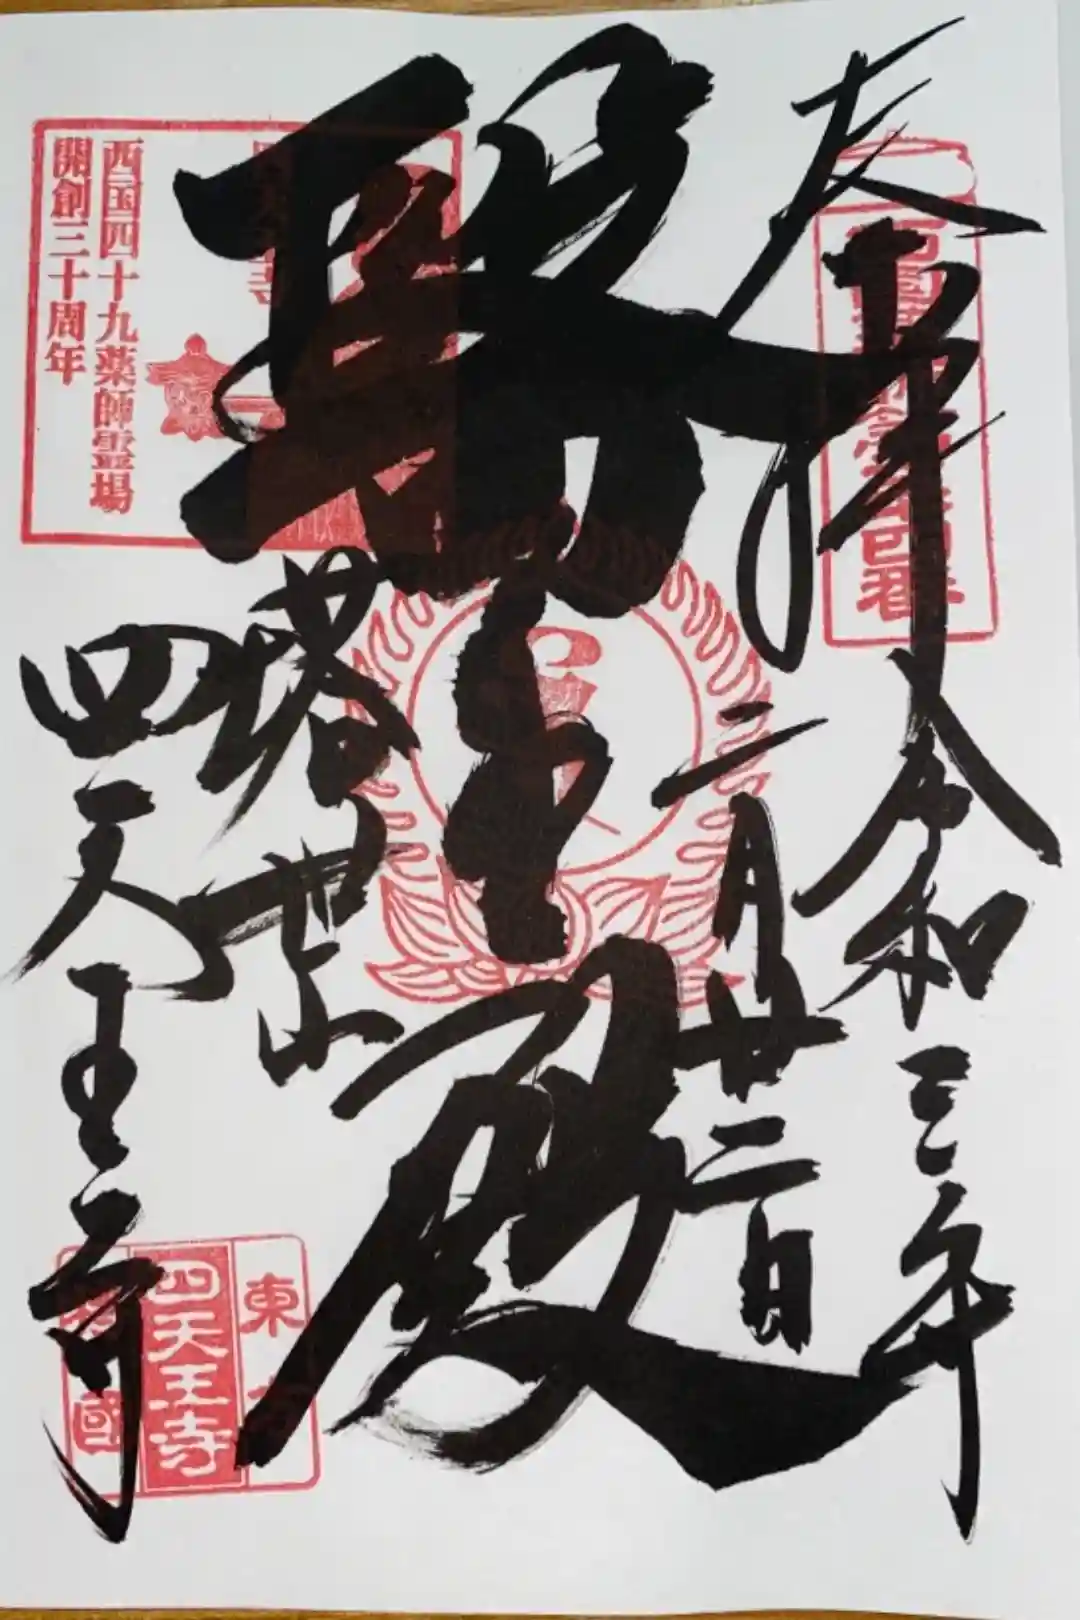 奉拝
令和三年
二月廿二日
醫王殿
塔世山
四天王寺
西国四十九薬師霊場
開創三十周年
東
四天王寺
國